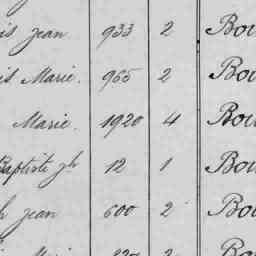 is Jean 933 2 Bou
is Marie. 965 2 Bou
Marie. 1920 4 Bou
Baptiste jh 12 1 Bou
h Jean 600 2 Bou